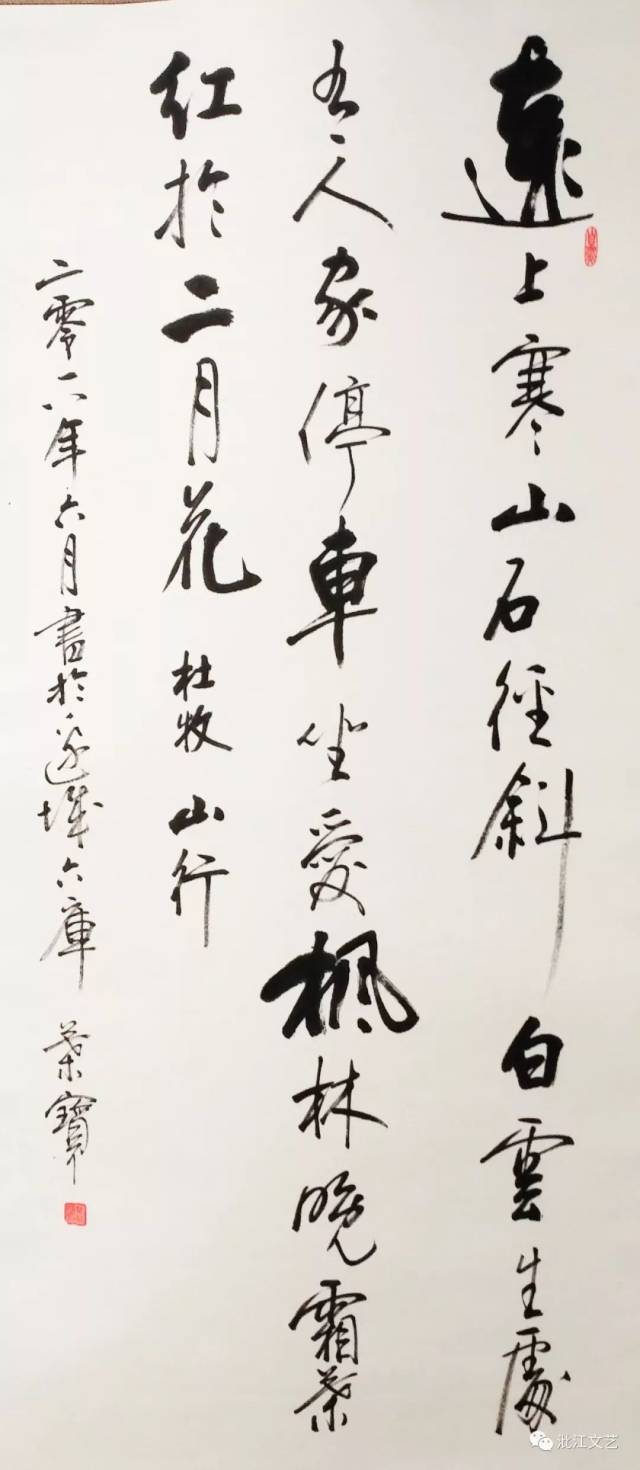 遠上寒山石徑斜白雲生處
有人家停車坐愛楓林晚霜葉
紅於二月花 杜牧 山行
二零一八年六月書於邊城六庫 葉寶
沘江文艺